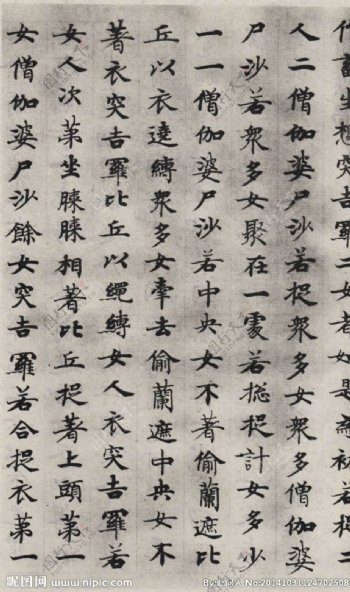 畜生想突吉羅二女者如是為初若捉二
人二僧伽婆尸沙若捉衆多女衆多僧伽婆
尸沙若衆多女聚在一處若揔捉計女多少
一一僧伽婆尸沙若中央女不著偷蘭遮比
丘以衣遶縛衆多女牽去偷蘭遮中央女不
著衣突吉羅比丘以繩縛女人衣突吉羅若
女人次第坐膝膝相著比丘捉著上頭第一
女僧伽婆尸沙餘女突吉羅若合捉衣第一
昵图网 www.nipic.com
No:20141031124702508